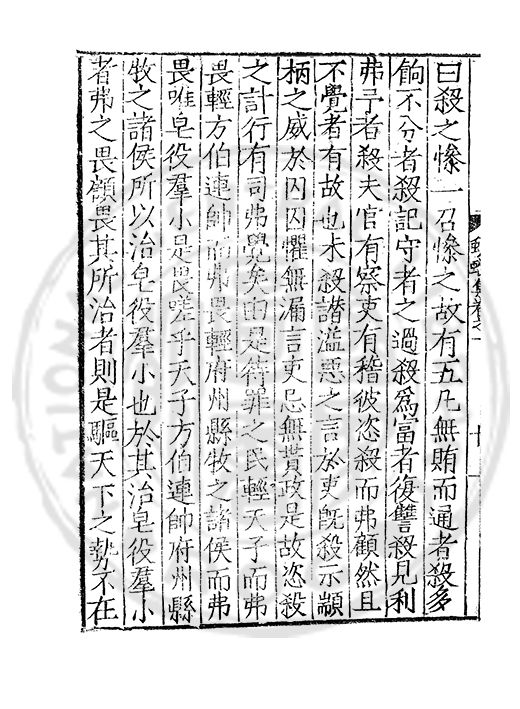 曰殺之慘一召慘之故有五凡無賄而通者殺多
餉不分者殺記守者之過殺爲富者復讐殺見利
弗予者殺夫官有察吏有稽彼恣殺而弗顧然且
不覺者有故也未殺譖濫惡之言於吏旣殺示顓
柄之威於囚囚懼無漏言吏忌無貰政是故恣殺
之計行有司弗覺矣由是待罪之民輕天子而弗
畏輕方伯連帥而弗畏輕府州縣牧之諸侯而弗
畏唯皂役羣小是畏嗟乎天子方伯連帥府州縣
牧之諸侯所以治皂役羣小也於其治皂役羣小
者弗之畏顧畏其所治者則是驅天下之勢不在